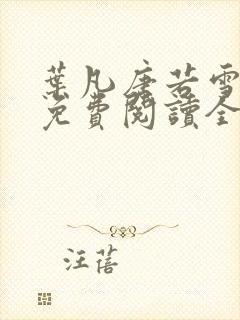 葉凡唐若雪
免費閱讀全
汪蓓